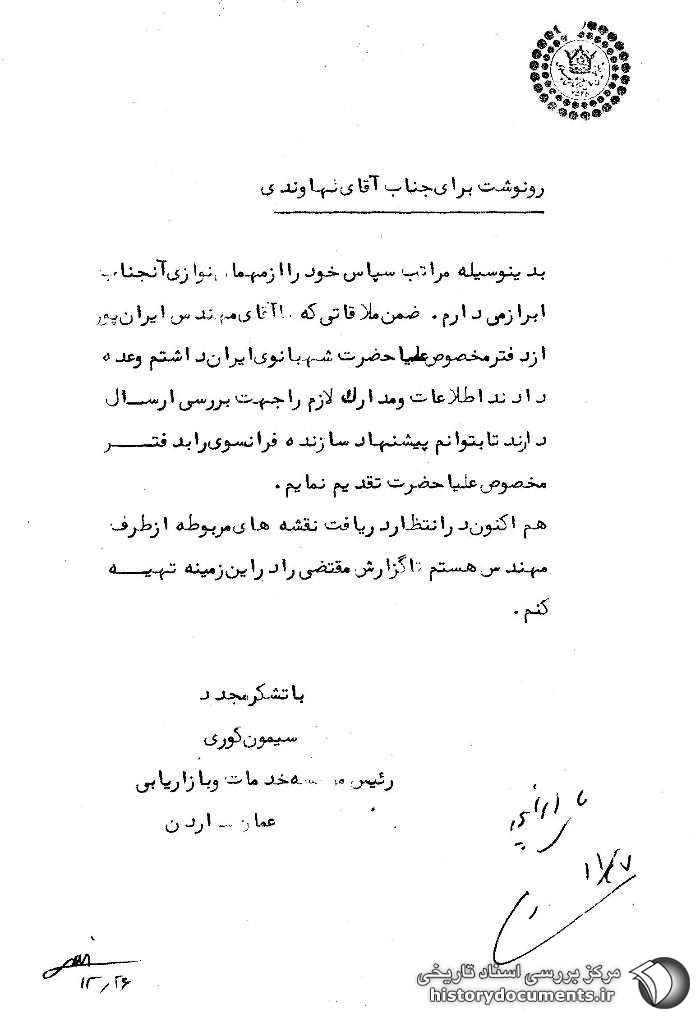 رونوشت برای جناب آقای نهاوندی
بدینوسیله مراتب سپاس خود را از مهمان نوازی آنجناب
ابراز می دارم. ضمن ملاقاتی که با آقای مهندس ایران پور
از دفتر مخصوص علیا حضرت شهبانوی ایران داشتم وعده
دادند اطلاعات و مدارک لازم را جهت بررسی ارسال
دارند تا بتوانم پیشنهاد سازنده فرانسوی را بدفتر
مخصوص علیا حضرت تقدیم نمایم.
هم اکنون در انتظار دریافت نقشه های مربوطه از طرف
مهندس هستم تا گزارش مقتضی را در این زمینه تهیه
کنم.
با تشکر مجدد
سیمون کوری
رئیس موسسه خدمات و بازاریابی
عمان - اردن
۱۱/۷
۱۲/۲۶
مرکز بررسی اسناد تاریخی
historydocuments.ir